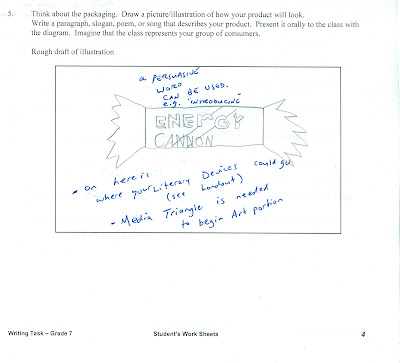 5. Think about the packaging. Draw a picture/illustration of how your product will look.
Write a paragraph, slogan, poem, or song that describes your product. Present it orally to the class with
the diagram. Imagine that the class represents your group of consumers.
Rough draft of illustration
a PERSUASIVE
WORD
CAN BE USED.
e.g. "INTRODUCING"
ENERGY
CANNON
- on here is
where your Literary Devices could go
(see handout)
- Media Triangle is needed
to begin Art portion
Writing Task – Grade 7 Student's Work Sheets 4